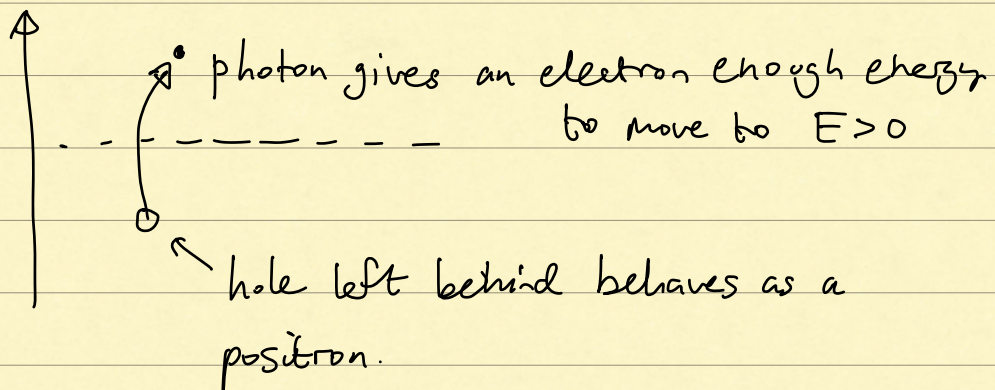 photon gives an electron enough energy
to move to E > 0
hole left behind behaves as a
positron.